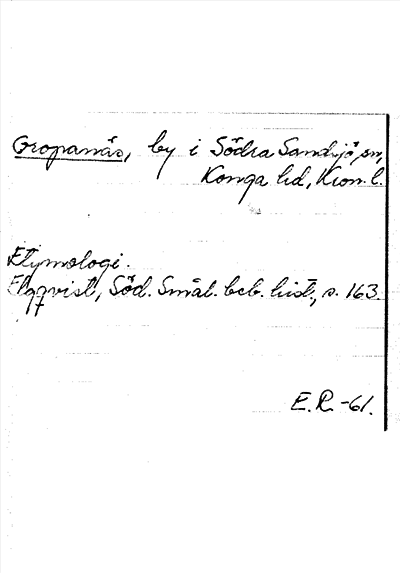 Gropanäs, by i Södra Sandsjö sn,
Konga hd, Kron. l.
Etymologi.
Elqvist, Söd. Smål. beb. hist., s. 163.
E.R. -61.